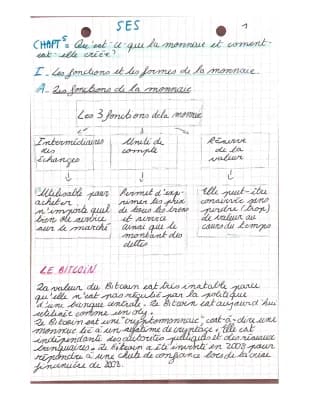 SES
1
CHAPT 5 : Qu'est-ce que la monnaie et coment
est-elle créée ?
I - Les fonctions et les formes de la monnaie
A - Les fonctions de la monnaie
Les 3 fonctions de la monnaie
Intermédiaires
des
échanges
Unité de
compte
Réserve
de la
valeur
Utilisable pour
acheter
n'importe quel
bien ou service
sur le marché
Permet d'exp-
rimer les prix
de tous les biens
et service
ainsi que le
montant des
dettes
Elle peut-être
conservée sans
perdre (trop)
de valeur au
cours du temps
LE BITCOIN
La valeur du Bitcoin est très instable parce
qu'elle n'est pas régulée par la politique
d'une banque centrale. Le Bitcoin est aujourd'hui
utilisé comme un
Le Bitcoin est une "cryptomonnaie", c'est-à-dire une
monnaie liée à un système de cryptage. Elle est
indépendante des autorités publiques et des réseaux
bancaires. Le Bitcoin a été inventé en 2008 pour
répondre à une chute de confiance lors de la crise
financière de 2008.